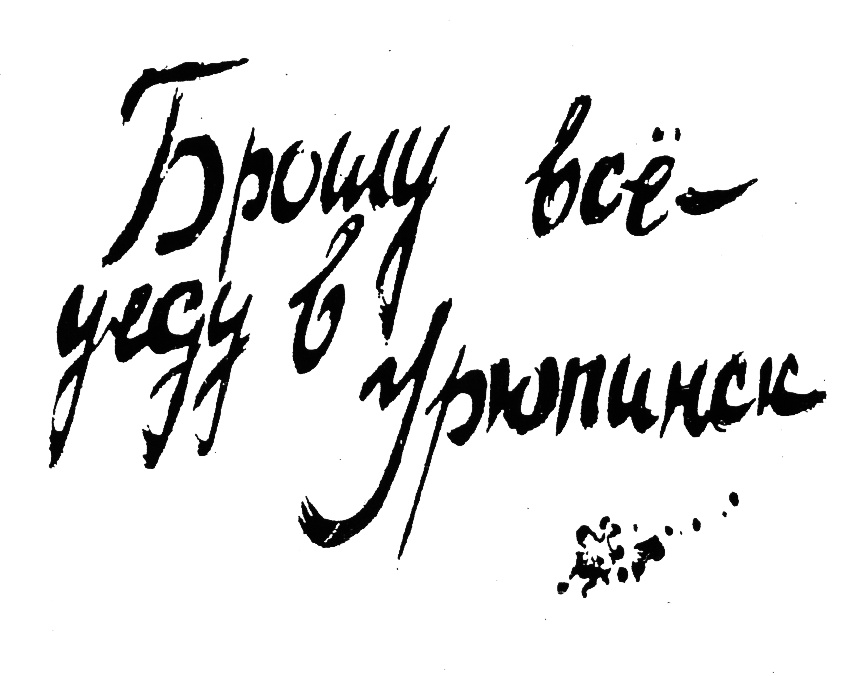 Брошу всё—
уеду в
Урюпинск